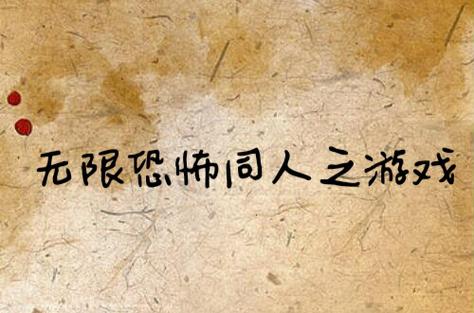 无限恐怖同人之游戏